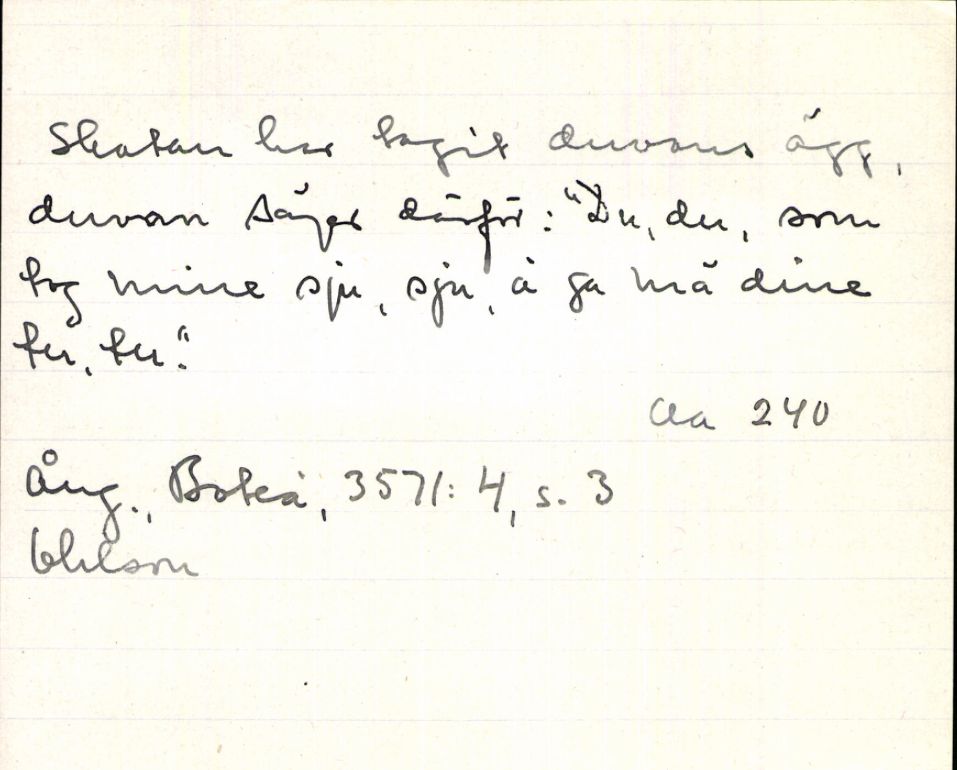 Skatan har tagit duvans ägg,
duvan säger därför: "Du, du, som
tog mine sju, sju, å ga mä dine
tu, tu."
Aa 240
Ång., Boteå, 3571: 4, s. 3
Ohlson